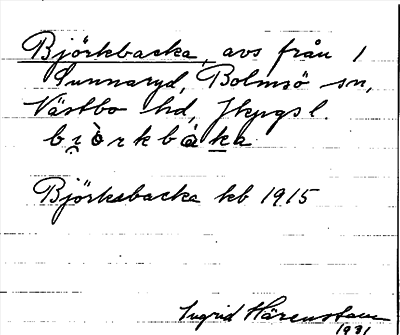 Björkbacka, avs från 1
Sunnaryd, Bolmsö sn,
Västbo hd, Jkpgs l.
Björkabacka kb 1915
Ingrid Härenstam
1931